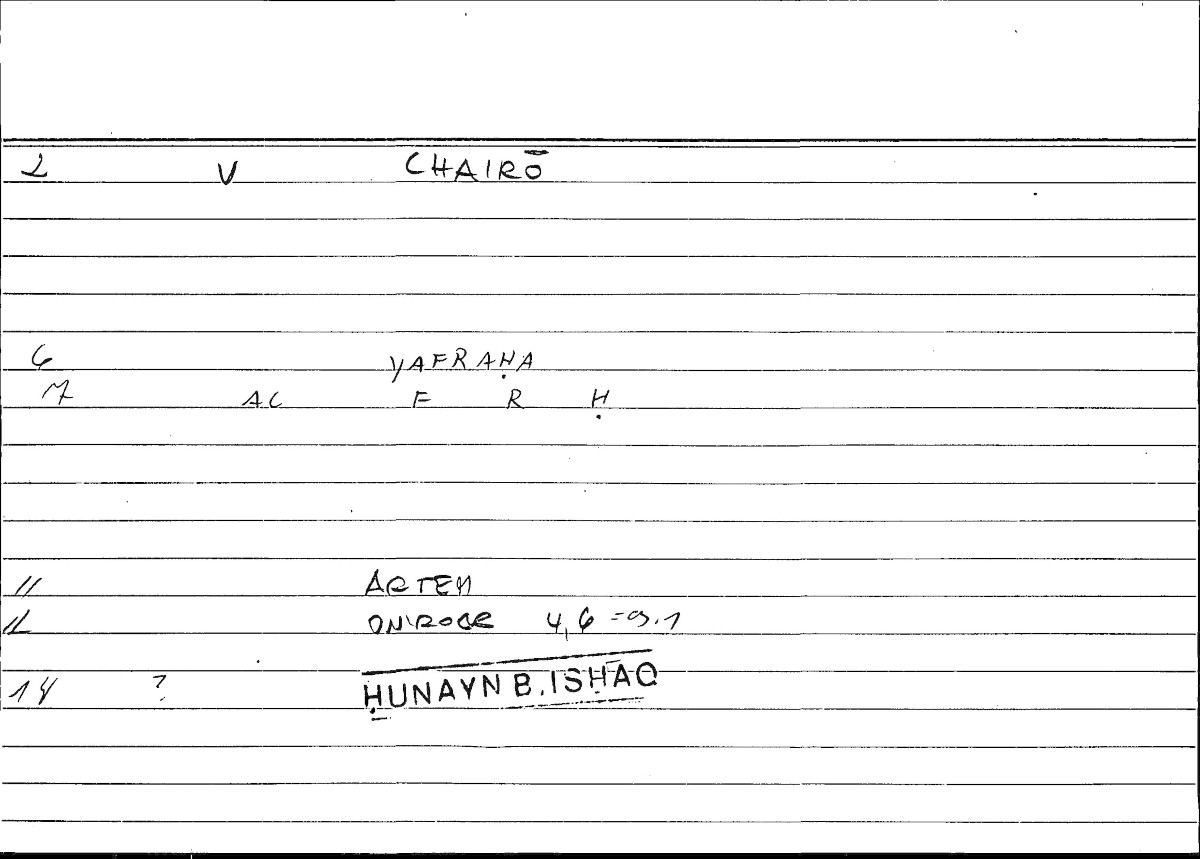 2 V CHAIRŌ
6 YAFRAḤA
7 AC F R Ḥ
11 ARTEM
12 ONIROCR 4,6 = 9.1
14 ? ḤUNAYN B. ISḤAQ